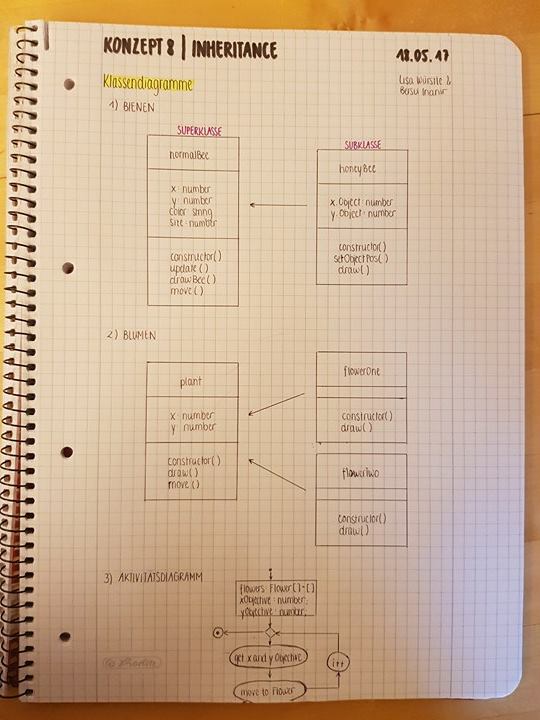 KONZEPT 8 | INHERITANCE
18.05.17
Klassendiagramme
Lisa Würstle &
1) BIENEN
SUPERKLASSE
normalBee
x: number
y: number
color: string
size: number
constructor()
update()
drawBee()
move()
SUBKLASSE
honeyBee
x.Object: number
y.Object: number
constructor()
setObjectPos()
draw()
2) BLUMEN
plant
x: number
y: number
constructor()
draw()
move()
flowerOne
constructor()
draw()
flowerTwo
constructor()
draw()
3) AKTIVITÄTSDIAGRAMM
flowers: Flower[]=[]
xObjective: number;
yObjective: number;
get x and y Objective
i++
move to Flower